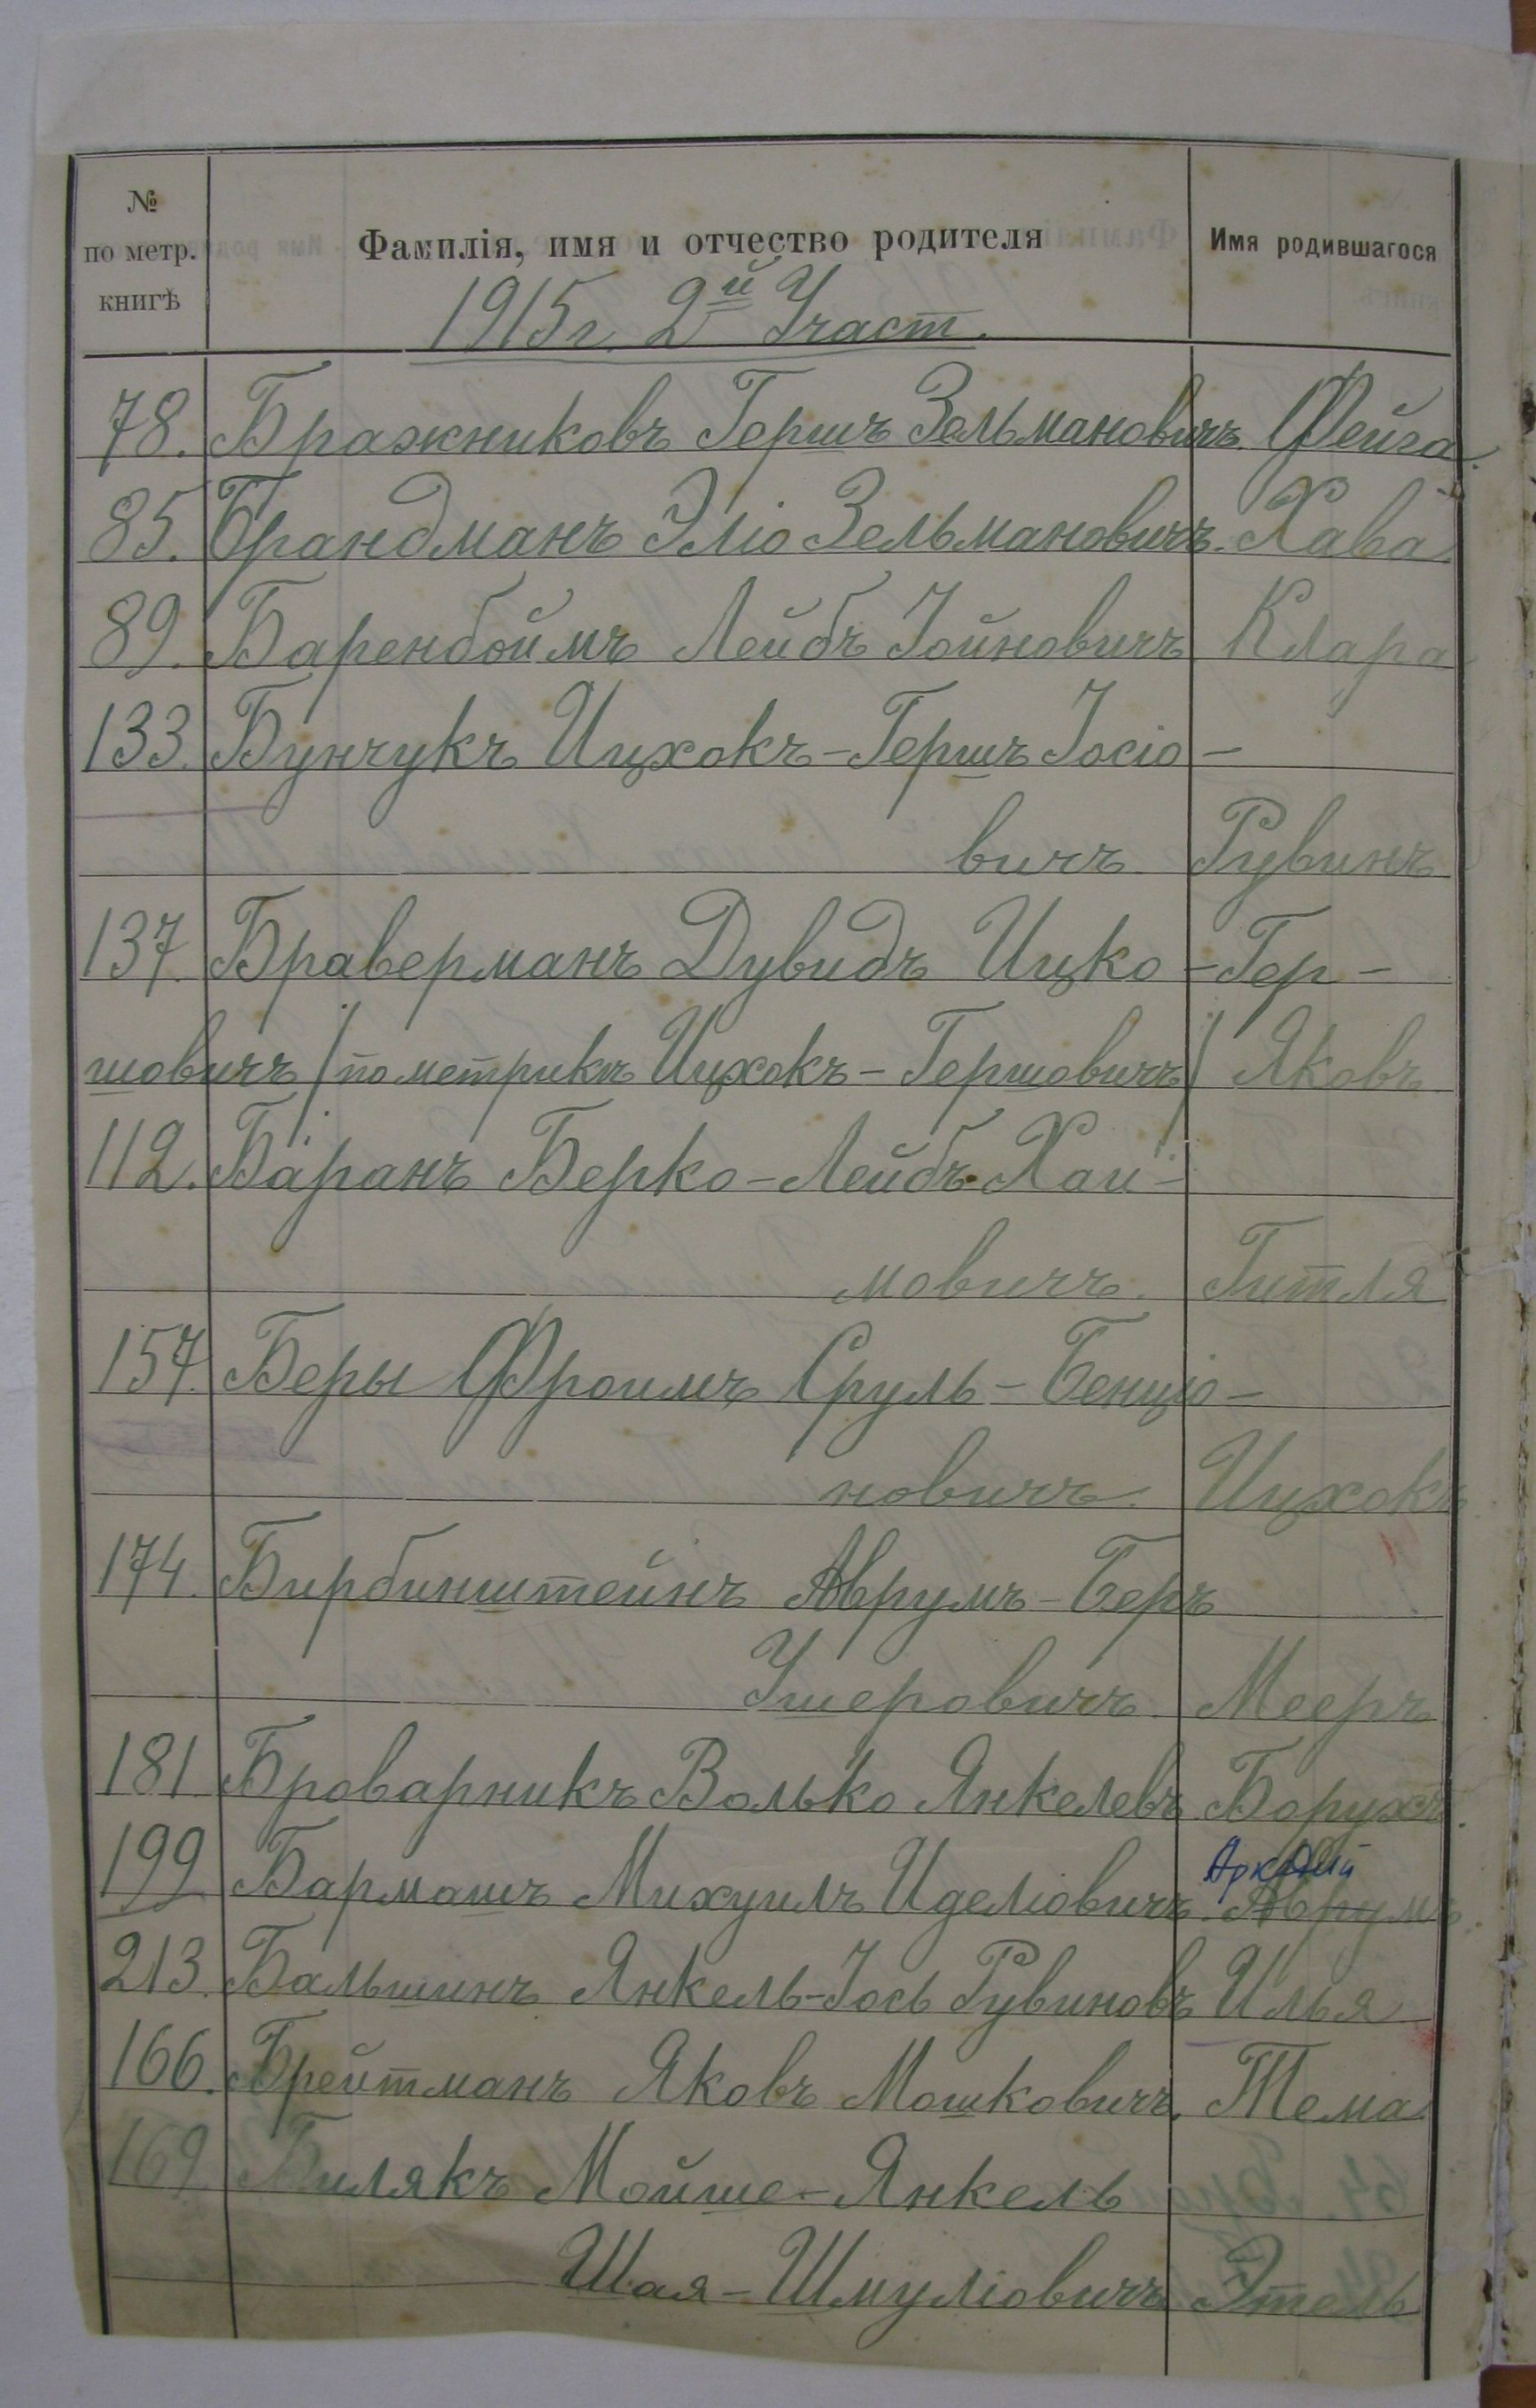 № по метр. книгѣ Фамилія, имя и отчество родителя Имя родившагося
1915 г. 2й Участ.
78. Бражниковъ Гершъ Зельмановичъ. Фейга.
85. Брандманъ Эліо Зельмановичъ. Хава
89. Баренбоймъ Лейбъ Іойновичъ Клара
133. Бунчукъ Ицхокъ-Гершъ Іосіо-
вичъ Рувинъ
137. Браверманъ Дувидъ Ицко-Гер-
шовичъ /по метрикѣ Ицхокъ-Гершовичъ/ Яковъ
112. Баранъ Берко-Лейбъ Хаи-
мовичъ. Гитля
157. Беры Фроимъ Сруль-Бенціо-
новичъ. Ицхокъ
174. Бирбинштейнъ Аврумъ-Беръ
Ушеровичъ. Мееръ
181. Броварникъ Волько Янкелевъ Борухъ.
Аркадій
199 Бармашъ Михуилъ Иделіовичъ. Аврумъ
213. Бальшинъ Янкель-Іось Рувиновъ Илья
166. Брейтманъ Яковъ Мошковичъ. Тема
169. Билякъ Мойше-Янкель
Шая-Шмуліовичъ Этель